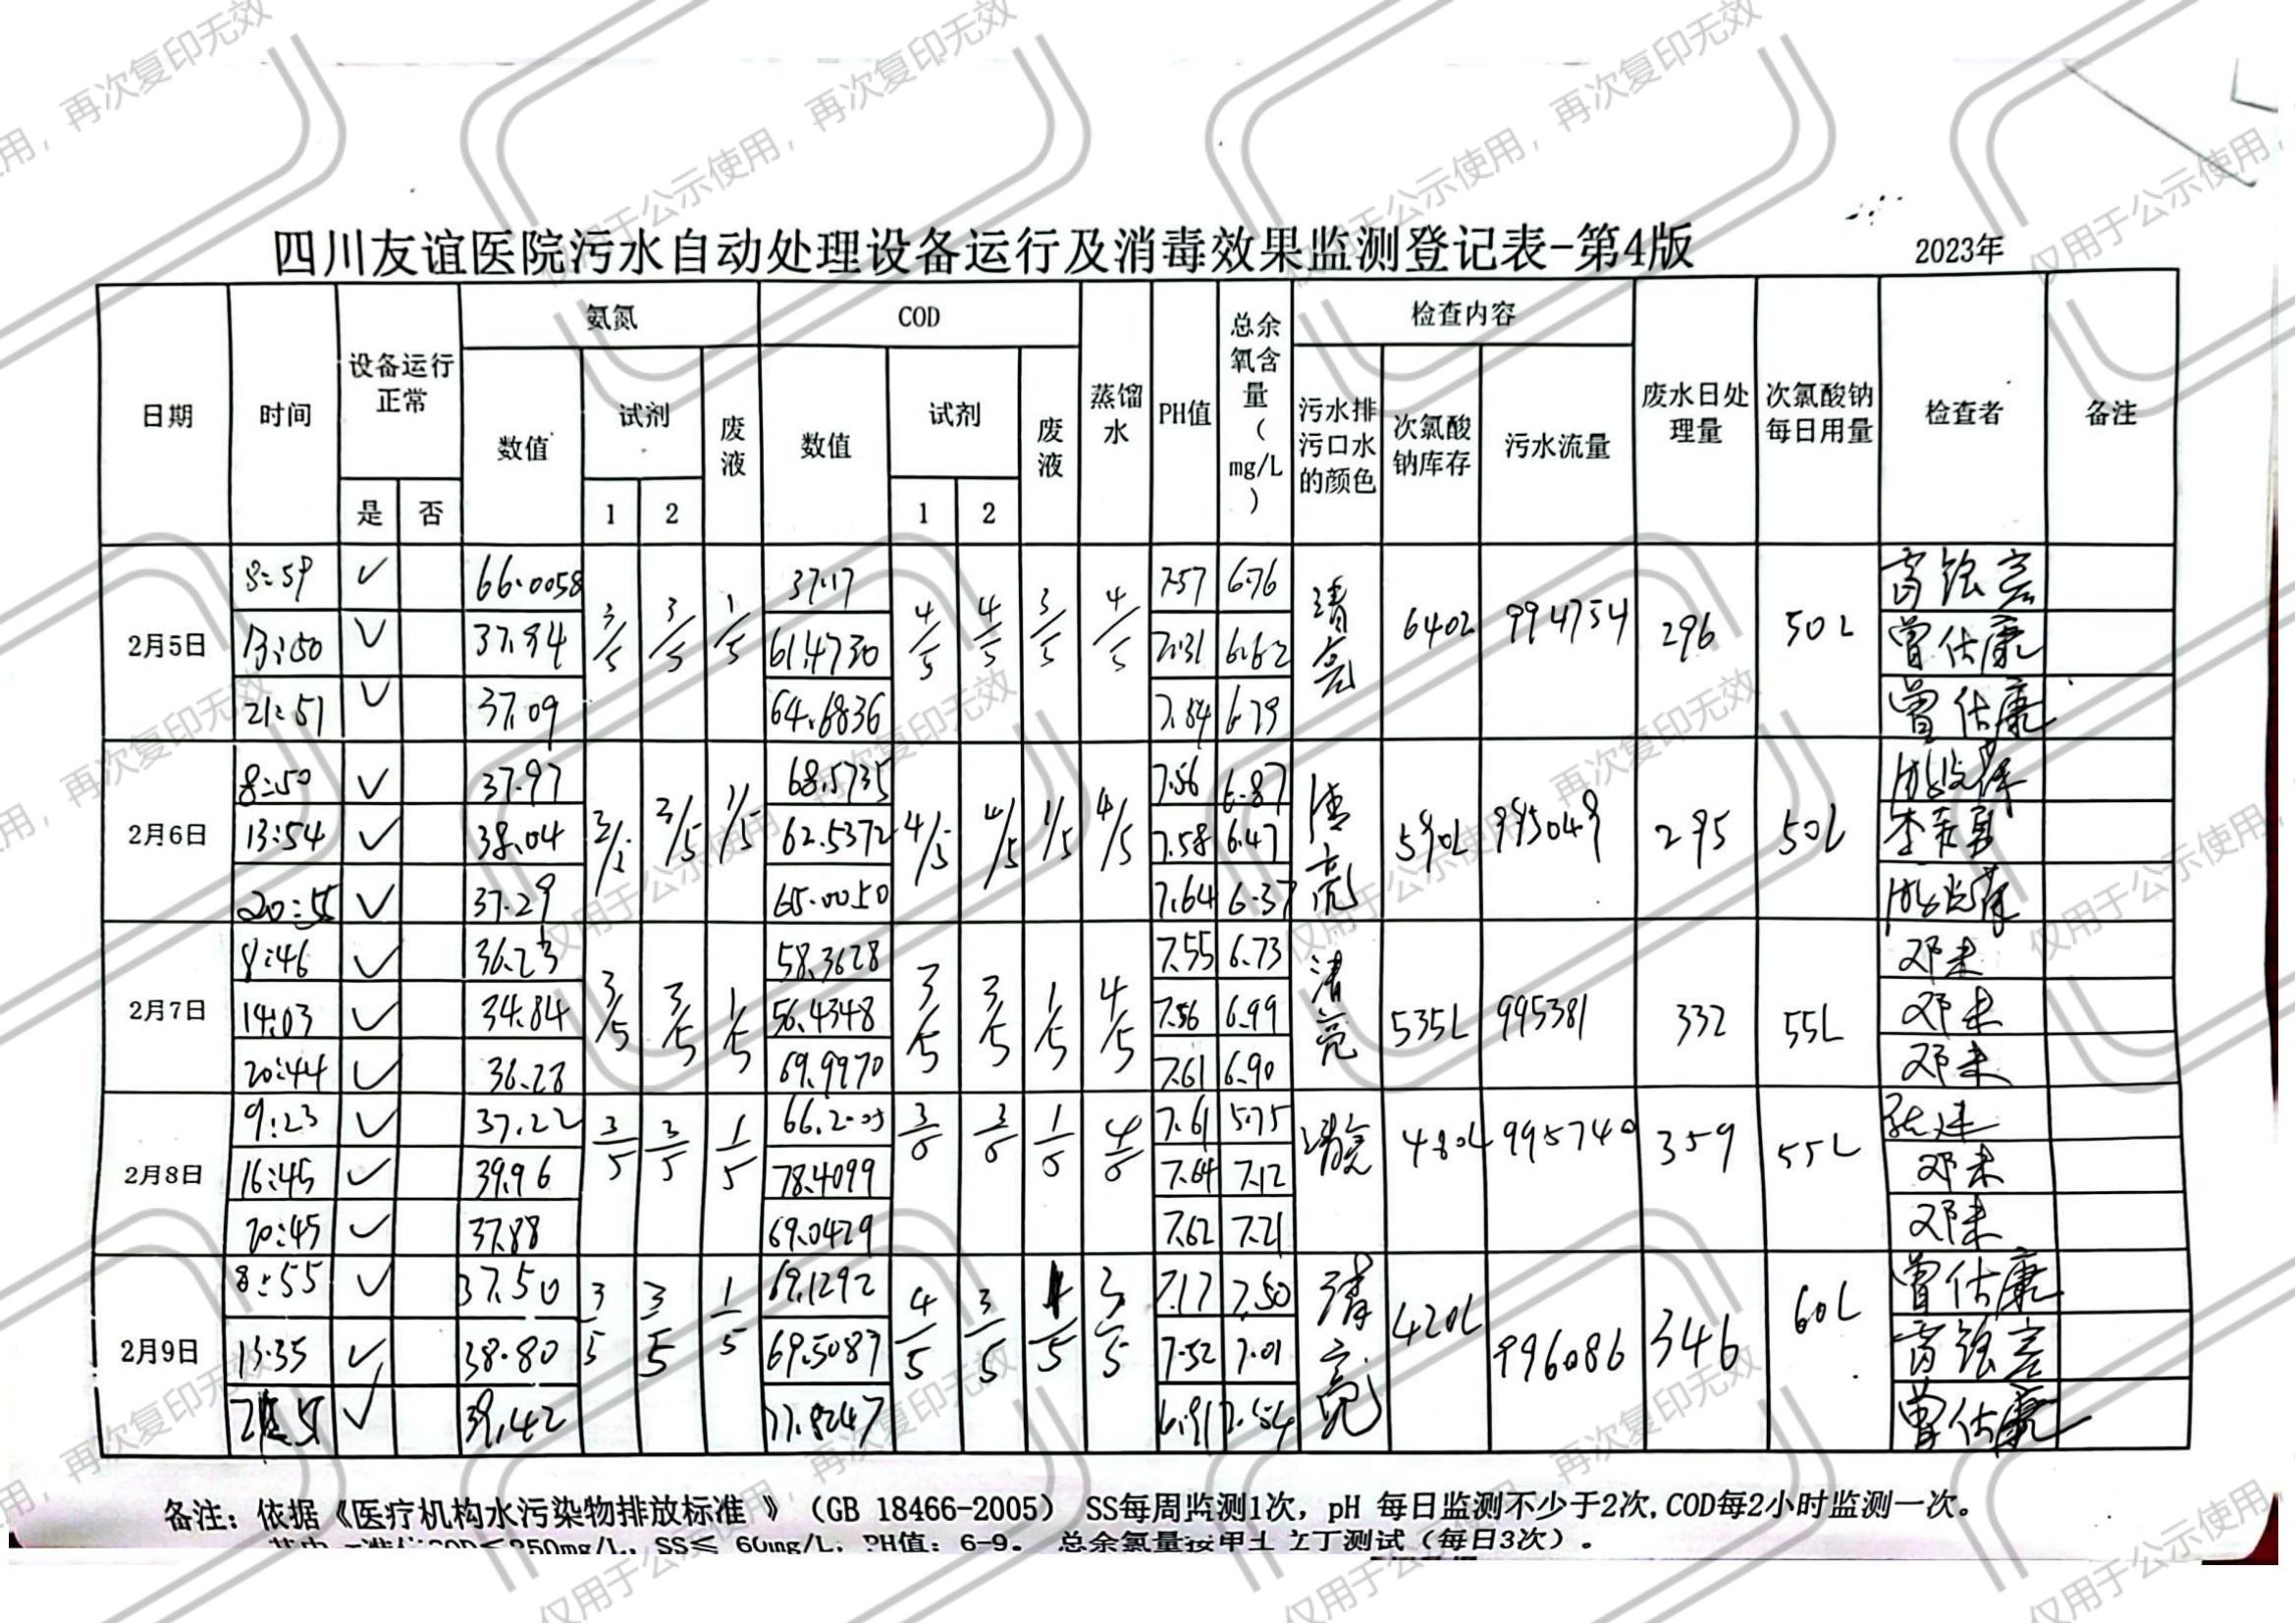 四川友谊医院污水自动处理设备运行及消毒效果监测登记表-第4版 2023年
日期 时间 设备运行正常 氨氮 COD 蒸馏水 PH值 总余氧含量(mg/L) 检查内容 废水日处理量 次氯酸钠每日用量 检查者 备注
数值 试剂 废液 数值 试剂 废液 污水排污口水的颜色 次氯酸钠库存 污水流量
是 否 1 2 1 2
2月5日 8:59 ✓ 66.0058 3/5 3/5 1/5 37.17 4/5 4/5 3/5 4/5 7.57 6.76 清亮 640L 994754 296 50L
13:50 ✓ 37.94 61.4730 7.31 6.62 曾仕康
21:51 ✓ 37.09 64.6836 7.84 6.79 曾仕康
2月6日 8:50 ✓ 37.97 3/5 3/5 1/5 68.5735 4/5 4/5 1/5 4/5 7.56 6.87 清亮 590L 995049 295 50L
13:54 ✓ 38.04 62.5372 7.58 6.47
20:55 ✓ 37.29 65.0050 7.64 6.37
2月7日 8:46 ✓ 36.23 3/5 3/5 1/5 58.3628 3/5 3/5 1/5 4/5 7.55 6.73 清亮 535L 995381 332 55L 邓未
14:03 ✓ 34.84 56.4348 7.56 6.99 邓未
20:44 ✓ 36.28 69.9970 7.61 6.90 邓未
2月8日 9:23 ✓ 37.22 3/5 3/5 1/5 3/5 3/5 1/5 4/5 7.61 5.75 清亮 480L 995740 359 55L
16:45 ✓ 39.96 78.4099 7.64 7.12 邓未
20:45 ✓ 37.88 69.0429 7.62 7.21 邓未
2月9日 8:55 ✓ 37.50 3/5 3/5 1/5 69.1292 4/5 3/5 1/5 3/5 7.17 7.50 清亮 420L 996086 346 60L 曾仕康
13:35 ✓ 38.80 69.5087 7.52 7.01
✓ 39.42 77.8247 6.91 7.54 曾仕康
备注：依据《医疗机构水污染物排放标准 》（GB 18466-2005） SS每周监测1次，pH 每日监测不少于2次,COD每2小时监测一次。
COD≤250mg/L，SS≤ 60mg/L，PH值：6-9。 总余氯量 测试（每日3次）。
仅用于公示使用，再次复印无效